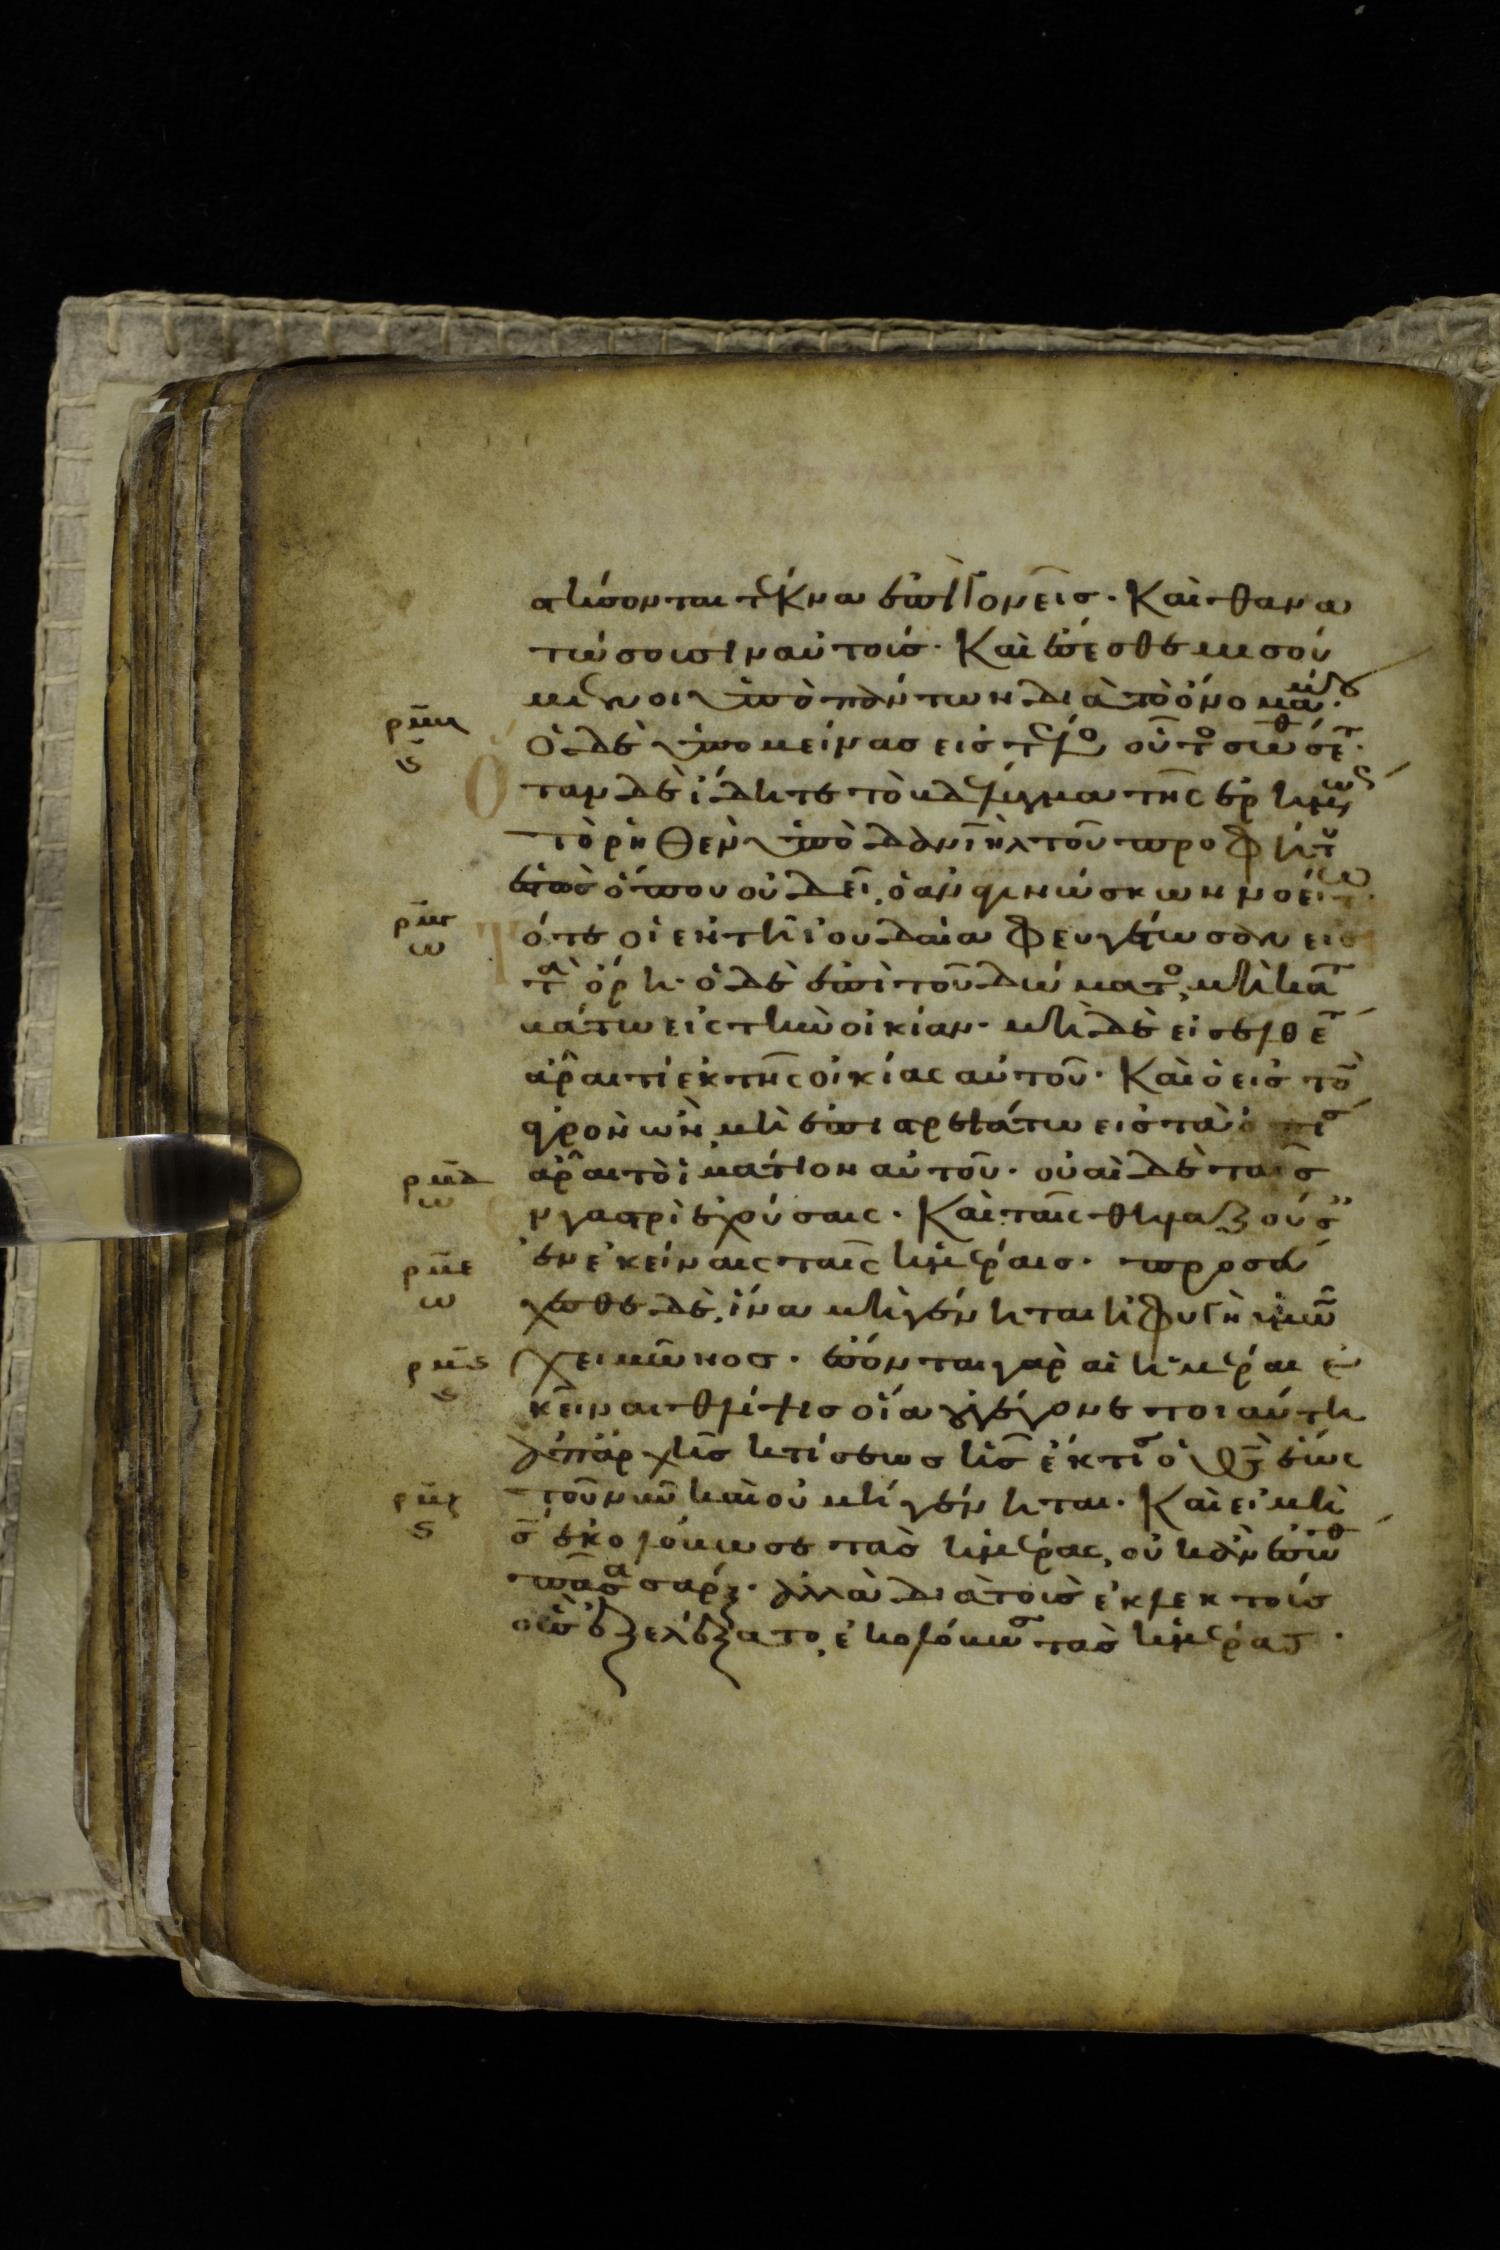 στήσονται τέκνα ἐπὶ γονεῖς· Καὶ θανα
τώσουσιν αὐτούς· Καὶ ἔσεσθε μισού
μενοι ὑπὸ πάντων διὰ τὸ ὄνομά μου·
ρμβ
Ὁ δὲ ὑπομείνας εἰς τέλο οὗτο σωθήσετ·
Ὅταν δὲ ἴδητε τὸ βδέλυγμα τῆς ἐρημώς
τὸ ῥηθὲν ὑπὸ δανιὴλ τοῦ προφήτου
ἑστὼς ὅπου οὐ δεῖ, ὁ ἀναγινώσκων νοείτω·
ρμγ
ω
Τότε οἱ ἐν τῆ ἰουδαία φευγέτωσαν εἰς
τὰ ὄρη· ὁ δὲ ἐπὶ τοῦ δώματο, μὴ κατα
βάτω εἰς τὴν οἰκίαν· μὴ δὲ εἰσελθέτ
ἆραι τί ἐκ τῆς οἰκίας αὐτοῦ· Καὶ ὁ εἰς τὸ
ἀγρὸν ὢν, μὴ ἐπιστρεψάτω εἰς τὰ ὀπίσ
ρμδ
ω
ἆραι τὸ ἱμάτιον αὐτοῦ· οὐαὶ δὲ ταῖς
ἐν γαστρὶ ἐχούσαις· Καὶ ταῖς θηλαζούσ
ρμε
ω
ἐν ἐκείναις ταῖς ἡμέραις· προσεύ
χεσθε δὲ, ἵνα μὴ γένηται ἡ φυγὴ ὑμῶν
ρμς
χειμῶνος· ἔσονται γὰρ αἱ ἡμέραι ἐ
κεῖναι θλίψις οἵα οὐ γέγονε τοιαύτη
ἀπ' ἀρχῆς κτίσεως ἧς ἔκτισ ὁ θς ἕως
ρμζ
ς
τοῦ νῦν καὶ οὐ μὴ γένηται· Καὶ εἰ μὴ
κς ἐκολόβωσε τὰς ἡμέρας, οὐκ ἂν ἐσώθ
πᾶσα σάρξ· ἀλλὰ διὰ τοὺς ἐκλεκτούς
οὓς ἐξελέξατο, ἐκολόβωσ τὰς ἡμέρας·